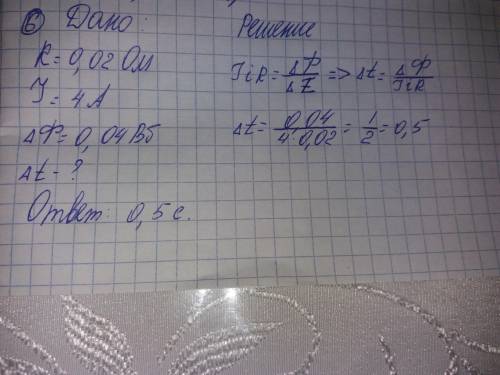 ⑥ Дано:
R = 0,02 Ом
I = 4 А
ΔФ = 0,04 Вб
Δt - ?
Ответ: 0,5 с.
Решение
IiR = ΔФ/Δt => Δt = ΔФ/IiR
Δt = 0,04/4·0,02 = 1/2 = 0,5